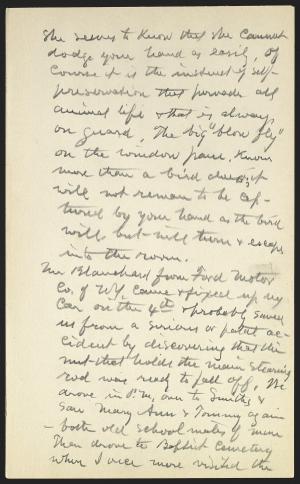 She seems to know that she cannot
dodge your hand as easily, of
course it is the instinct of self-
preservation that pervade all
animal life & that is always
on guard. The big "blow fly"
on the window pane, knows
more than a bird does, it
will not remain to be cap-
tured by your hand as the bird
will but will turn & escape
into the room.
Mr Blanchard from Ford Motor
Co. of N.Y. came & fixed up my
car on the 4th & probably saved
us from a serious or fatal ac-
cident by discovering that the
nut that holds the main steering
rod was ready to fall off. We
drove in P.M. over to Smiths &
saw Mary Ann & Tommy again
- both old school mates of mine
Then drove to Baptist Cemetery
where I once more visited the